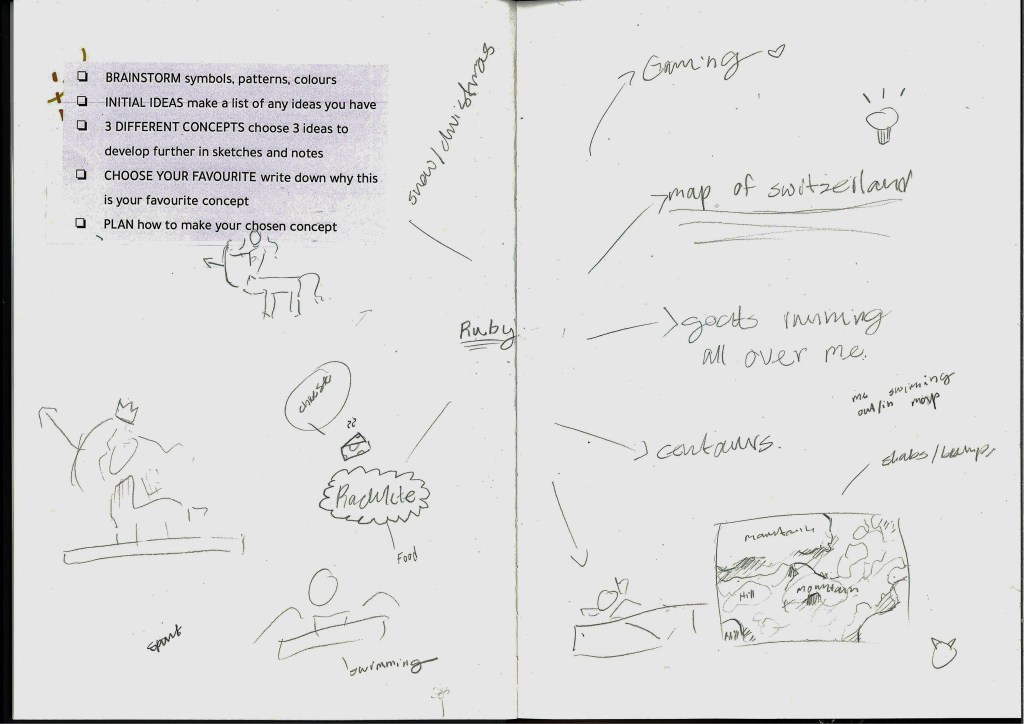 BRAINSTORM symbols, patterns, colours
INITIAL IDEAS make a list of any ideas you have
3 DIFFERENT CONCEPTS choose 3 ideas to
develop further in sketches and notes
CHOOSE YOUR FAVOURITE write down why this
is your favourite concept
PLAN how to make your chosen concept
snow/christmas
Ruby
Food
sport
swimming
Gaming
map of switzerland
goats running
all over me.
me swimming
map
contours.
slabs/bumps
mountain
Hill
mountain